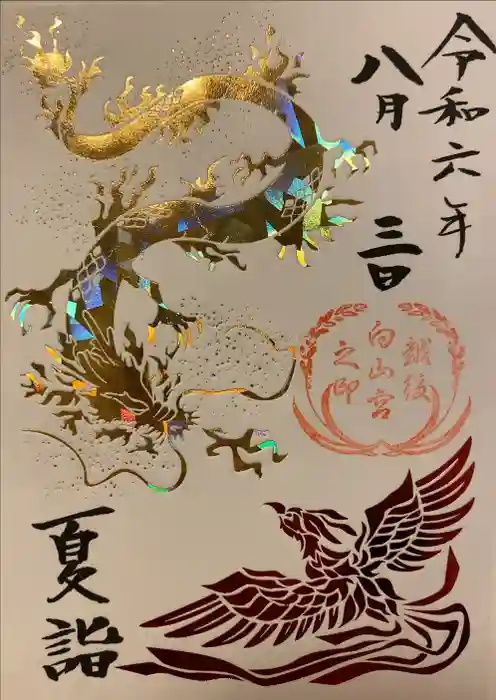 令和六年
八月 三日
越後
白山宮
之印
夏詣